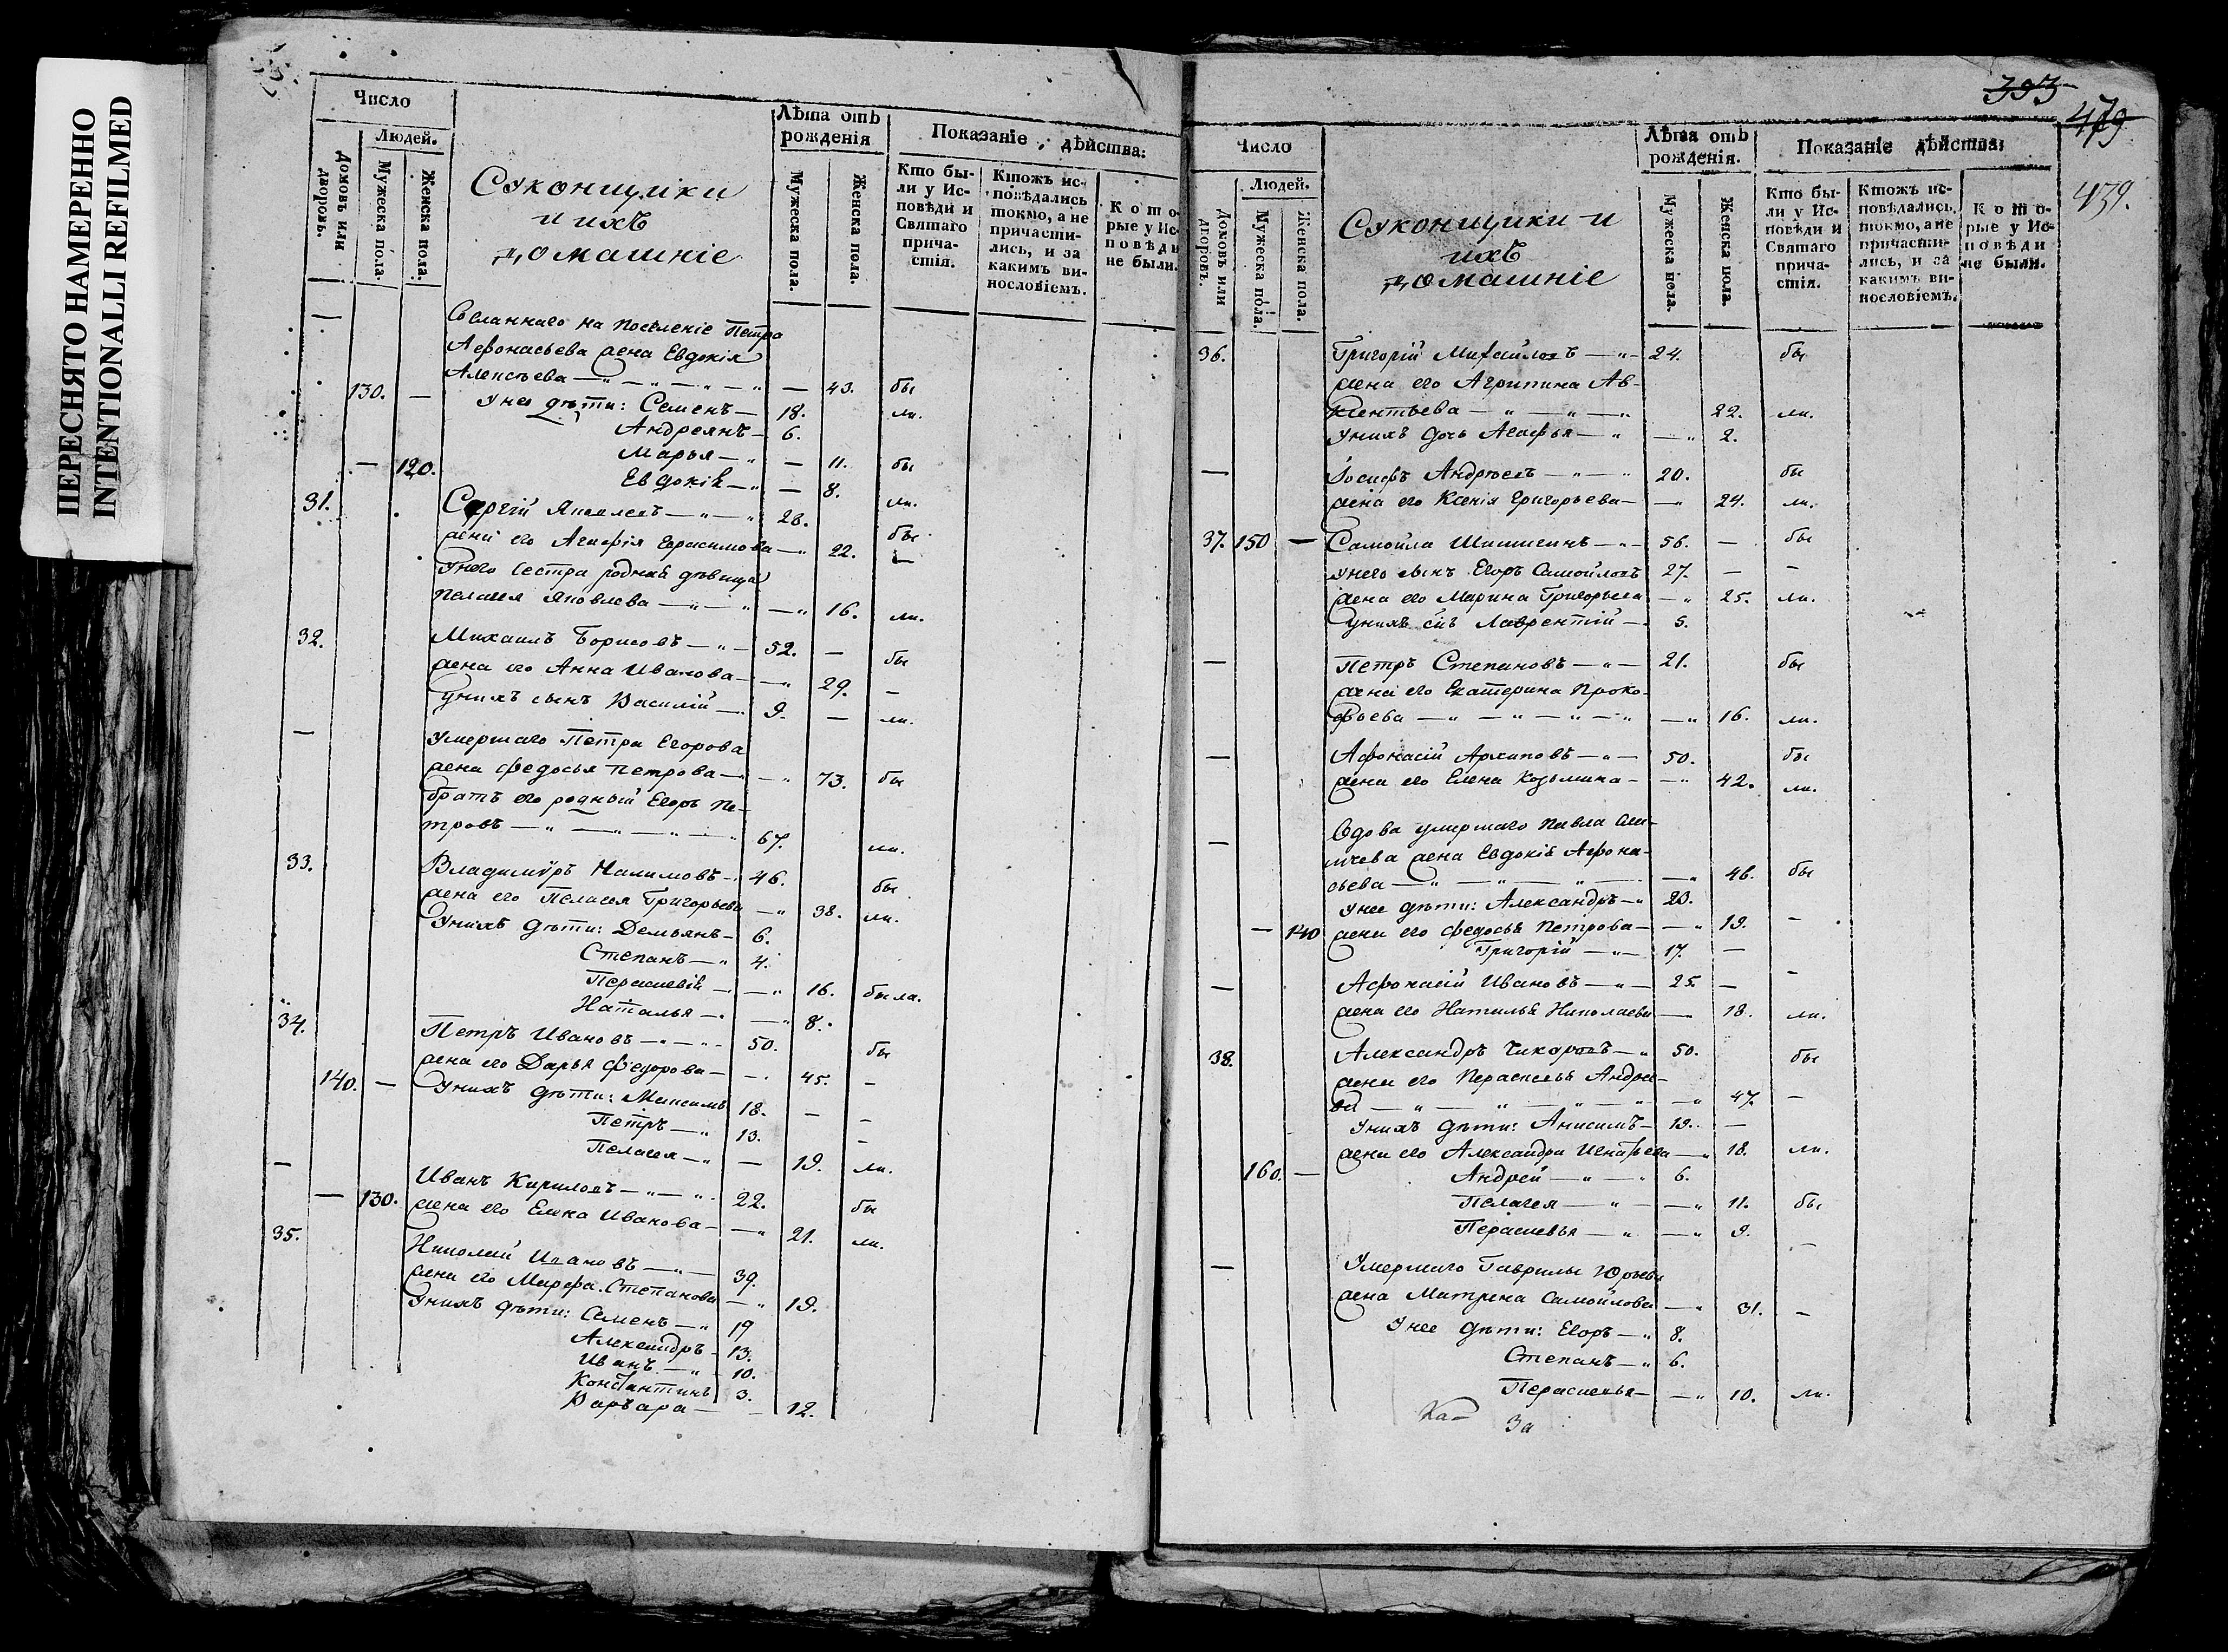 ПЕРЕСНЯТО НАМЕРЕННО
INTENTIONALLI REFILMED
Число
Людей.
Домовъ или дворовъ.
Мужеска пола.
Женска пола.
Суконщики
и ихъ
домашніе
Лѣта отъ рожденія
Мужеска пола.
Женска пола.
Показаніе дѣйства:
Кто были у Исповѣди и Святаго причастія.
Ктожъ исповѣдались токмо, а не причастились, и за какимъ винословіемъ.
Которые у Исповѣди не были.
— Сосланнаго на поселеніе Петра
Афонасьева жена Евдокія
Алексѣева — 43. бы
130. — У нея дѣти: Семенъ — 18. ли.
Андреянъ — 6.
Марья — 11. бы
— 120. Евдокія — 8. ли.
31. Сергій Яковлевъ — 28. бы
жена его Агафія Герасимова — 22. —
У него сестра родная дѣвица
Пелагея Яковлева — 16. ли.
32. Михаилъ Борисовъ — 52. — бы
жена его Анна Иванова — 29. —
у нихъ сынъ Василій — 9. — ли.
— Умершаго Петра Егорова
жена Федосья Петрова — 73. бы
братъ его родный Егоръ Пе-
тровъ — 67. ли.
33. Владимиръ Налимовъ — 46. бы
жена его Пелагея Григорьева — 38. ли.
У нихъ дѣти: Демьянъ — 6.
Степанъ — 4.
Пераскевія — 16. была.
Наталья — 8.
34. Петръ Ивановъ — 50. бы
жена его Дарья Федорова — 45. —
140. — У нихъ дѣти: Максимъ 18. — —
Петръ — 13. —
Пелагея — 19. ли.
— Иванъ Кириловъ — 22. бы
— 130. жена его Елена Иванова — 21. ли.
35. Николай Ивановъ — 39.
жена его Марфа Степанова — 19.
У нихъ дѣти: Семенъ — 19
Александръ — 13.
Иванъ — 10.
Константинъ 3.
Варвара — 12.
393
479
439.
Число
Людей.
Домовъ или дворовъ.
Мужеска пола.
Женска пола.
Суконщики и
ихъ
домашніе
Лѣта отъ рожденія.
Мужеска пола.
Женска пола.
Показаніе дѣйства:
Кто были у Исповѣди и Святаго причастія.
Ктожъ исповѣдались токмо, а не причастились, и за какимъ винословіемъ.
Которые у Исповѣди не были.
36. Григорій Михайловъ — 24. бы
жена его Агрипина Ав-
ксентьева — 22. ли.
У нихъ дочь Агафья — 2.
— Іосифъ Андрѣевъ — 20. бы
жена его Ксенія Григорьева — 24. ли.
37. 150 — Самойла Шишигинъ — 56. — бы
У него сынъ Егоръ Самойловъ 27. — —
жена его Марина Григорьева — 25. ли.
У нихъ сынъ Лаврентій — 5.
— Петръ Степановъ — 21. бы
жена его Екатерина Проко-
фьева — 16. ли.
— Афонасій Архиповъ — 50. бы
жена его Елена Козьмина — 42. ли.
— Вдова умершаго Павла
жена Евдокія Афона-
сьева — 46. бы
У нее дѣти: Александръ — 23.
— 140 жена его Федосья Петрова — 19. —
Григорій — 17. —
— Афонасій Ивановъ — 25. — —
жена его Наталья Николаева — 18. ли.
38. Александръ Чикаровъ — 50. бы
жена его Пераскевья Андрее-
ва — 47. —
У нихъ дѣти: Анисимъ — 19. —
жена его Александра Игнатьева — 18. ли.
160. — Андрей — 6.
Пелагея — 11. бы
Пераскевья — 9. —
— Умершаго Гаврилы Юрьева
жена Матрена Самойлова — 31. —
У нее дѣти: Егоръ — 8.
Степанъ — 6.
Пераскевья — 10. ли.
Ка-
За